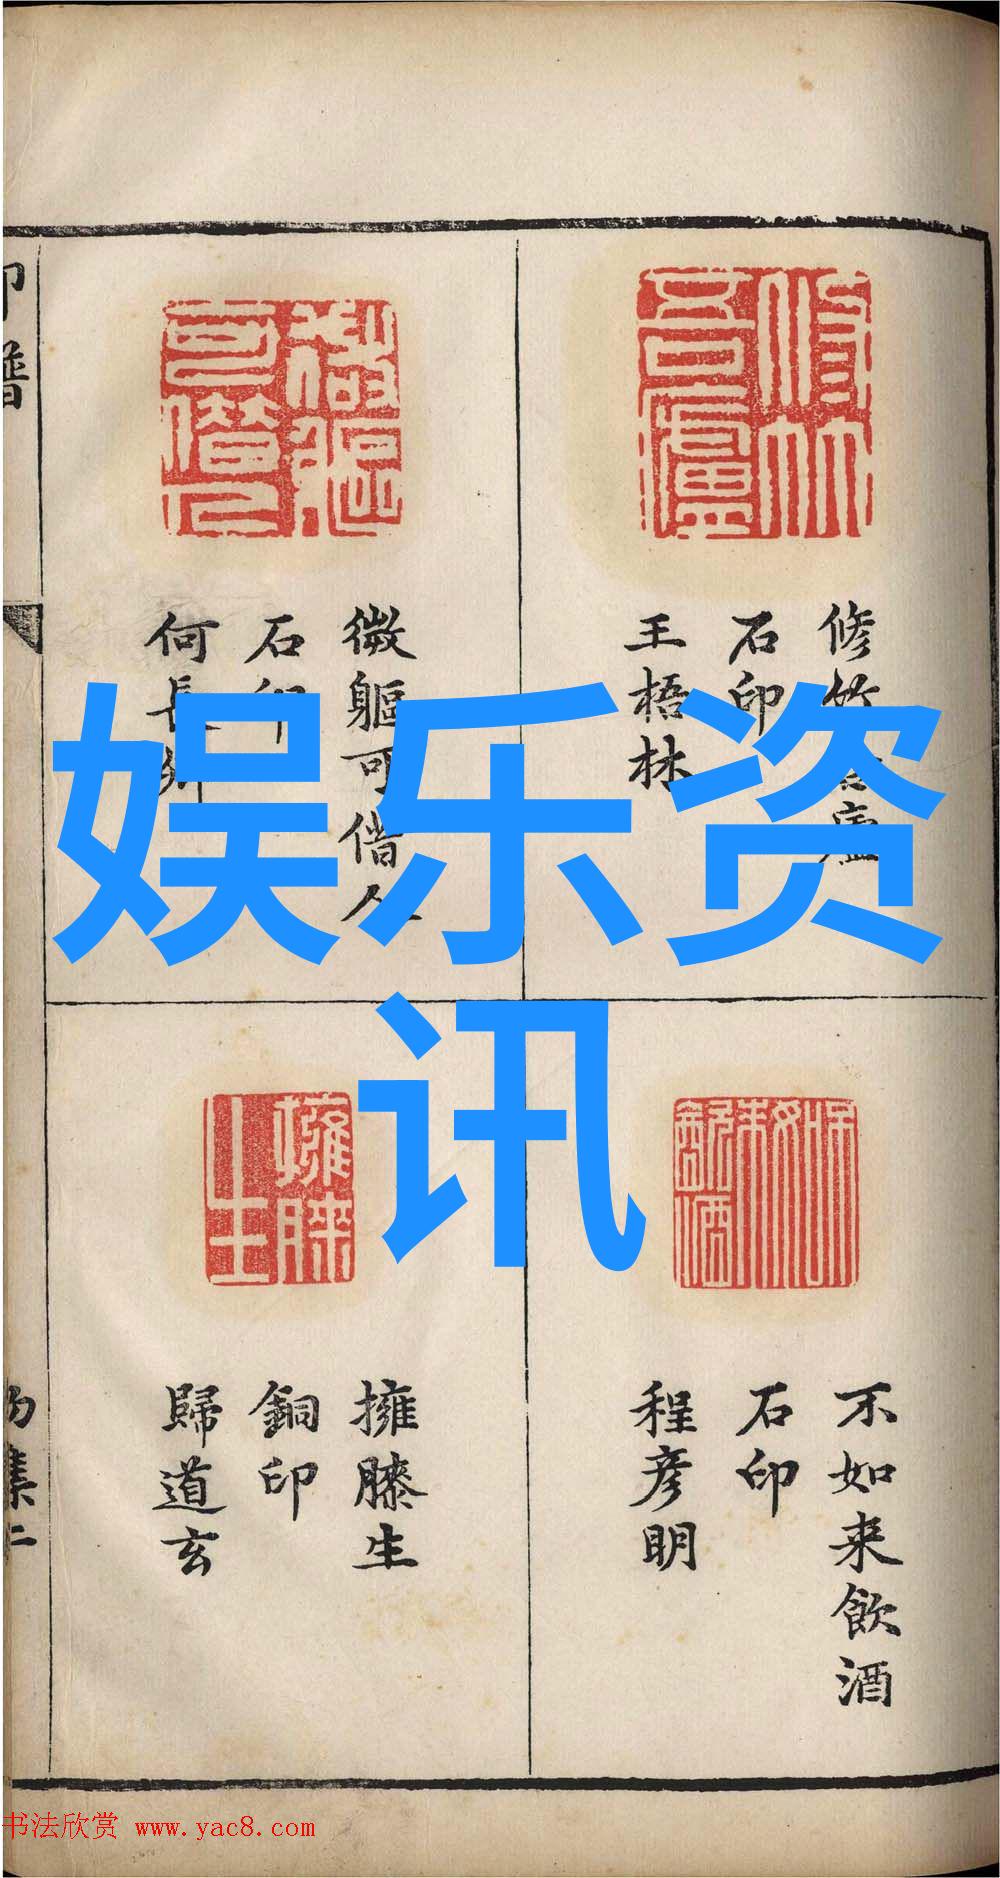 修竹吾廬
石印
王梧林
微軀可借人
石印
何長卿
不如来飲酒
石印
程彦明
擁膝生
銅印
歸道玄
印譜
初集二
娱乐资
讯
修竹吾廬
微軀可借人
不如来飲酒
擁膝生
书法欣赏 www.yac8.com